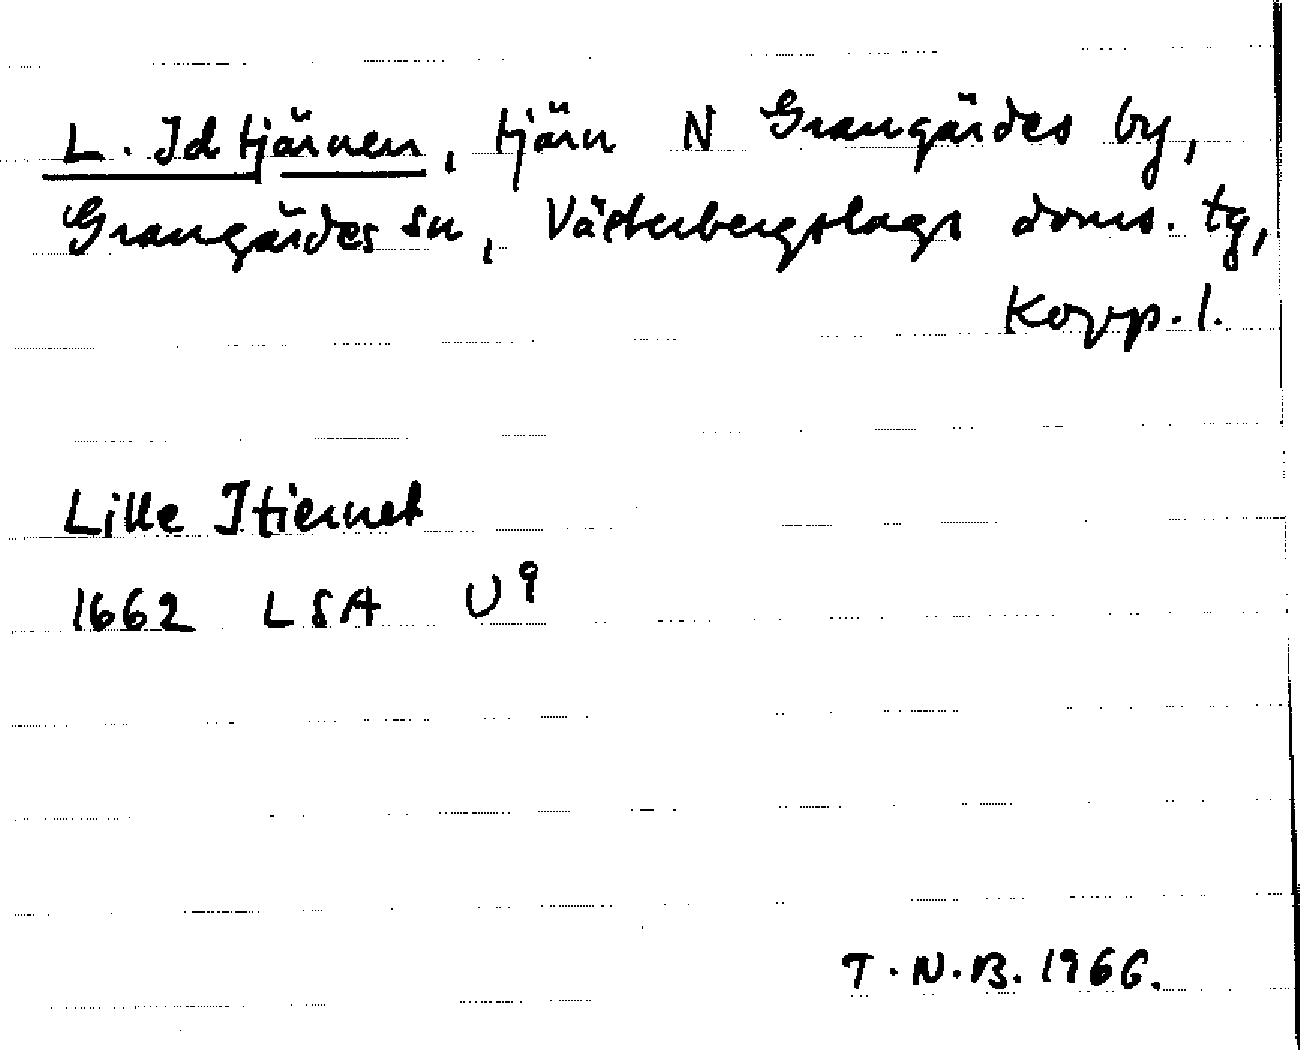 L. Idtjärnen, tjärn N Grangärdes by,
Grangärdes sn, Västerbergslags doms. tg,
Kopp. l.
Lille Itiernet
1662 LSA U 9
T.N.B. 1966.